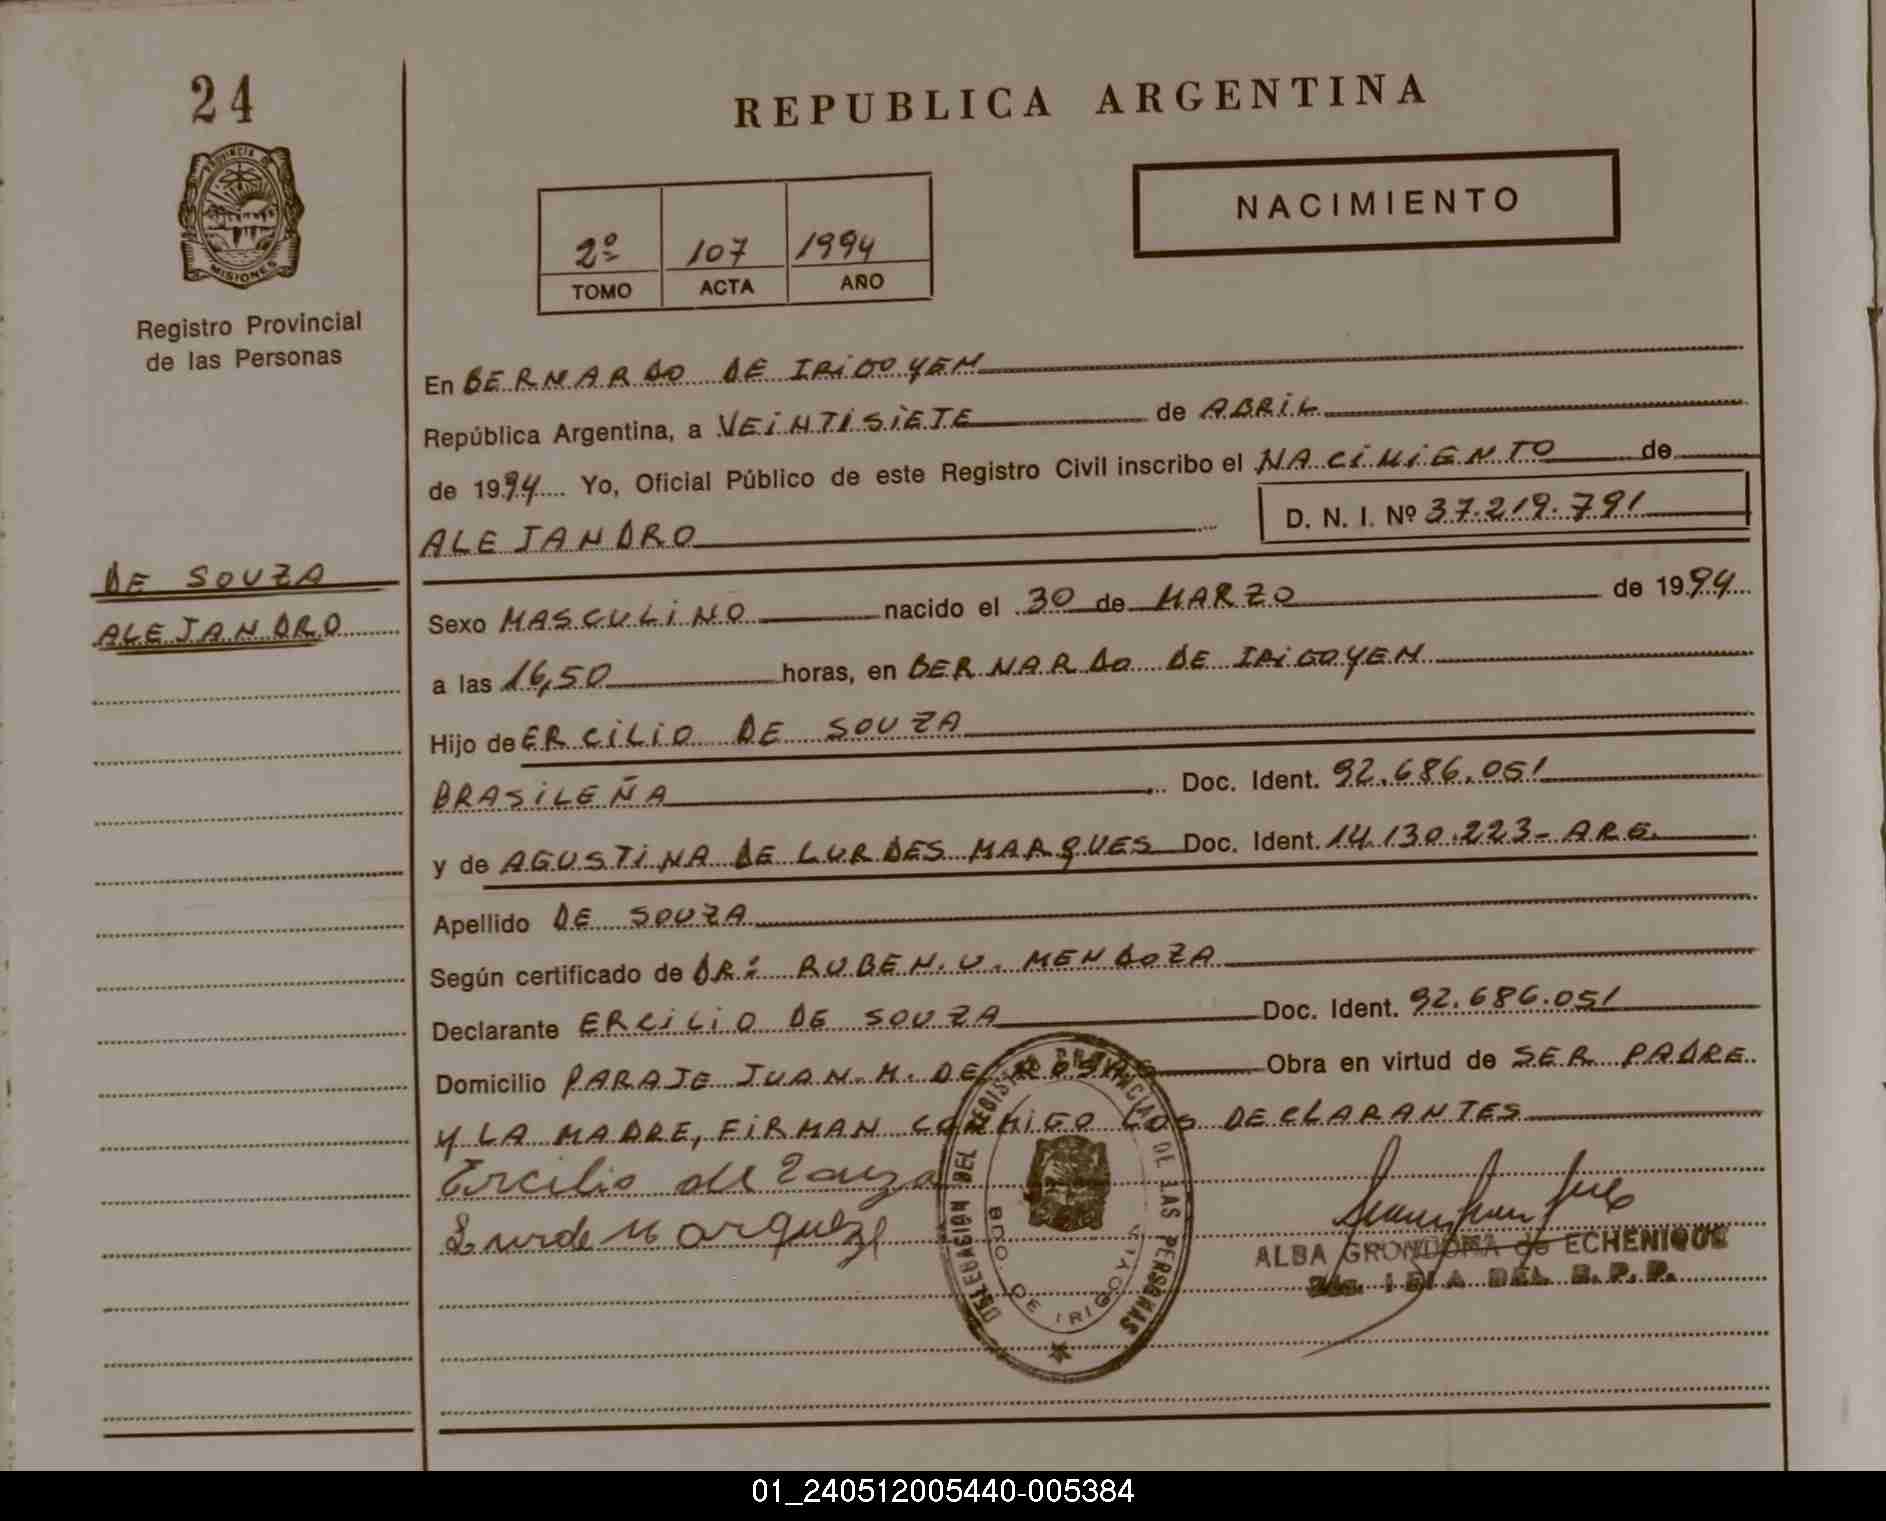 24
REPUBLICA ARGENTINA
PROVINCIA DE
MISIONES
NACIMIENTO
2º 107 1994
TOMO ACTA AÑO
Registro Provincial
de las Personas
En BERNARDO DE IRIGOYEN
República Argentina, a VEINTISIETE de ABRIL
de 1994 Yo, Oficial Público de este Registro Civil inscribo el NACIMIENTO de
ALEJANDRO D. N. I. Nº 37.219.791
DE SOUZA
ALEJANDRO
Sexo MASCULINO nacido el 30 de MARZO de 1994
a las 16,50 horas, en BERNARDO DE IRIGOYEN
Hijo de ERCILIO DE SOUZA
BRASILEÑA Doc. Ident. 92.686.051
y de AGUSTINA DE LURDES MARQUES Doc. Ident. 14.130.223- ARG.
Apellido DE SOUZA
Según certificado de DR: RUBEN. U. MENDOZA
Declarante ERCILIO DE SOUZA Doc. Ident. 92.686.051
Domicilio PARAJE JUAN. M. DE ROSAS Obra en virtud de SER PADRE
Y LA MADRE, FIRMAN CONMIGO LOS DECLARANTES
Ercilio de Souza
DELEGACIÓN DEL REGISTRO PROVINCIAL DE LAS PERSONAS
BDO. DE IRIGOYEN
ALBA GRONDONA de ECHENIQUE
DEL R. P. P.
01_240512005440-005384